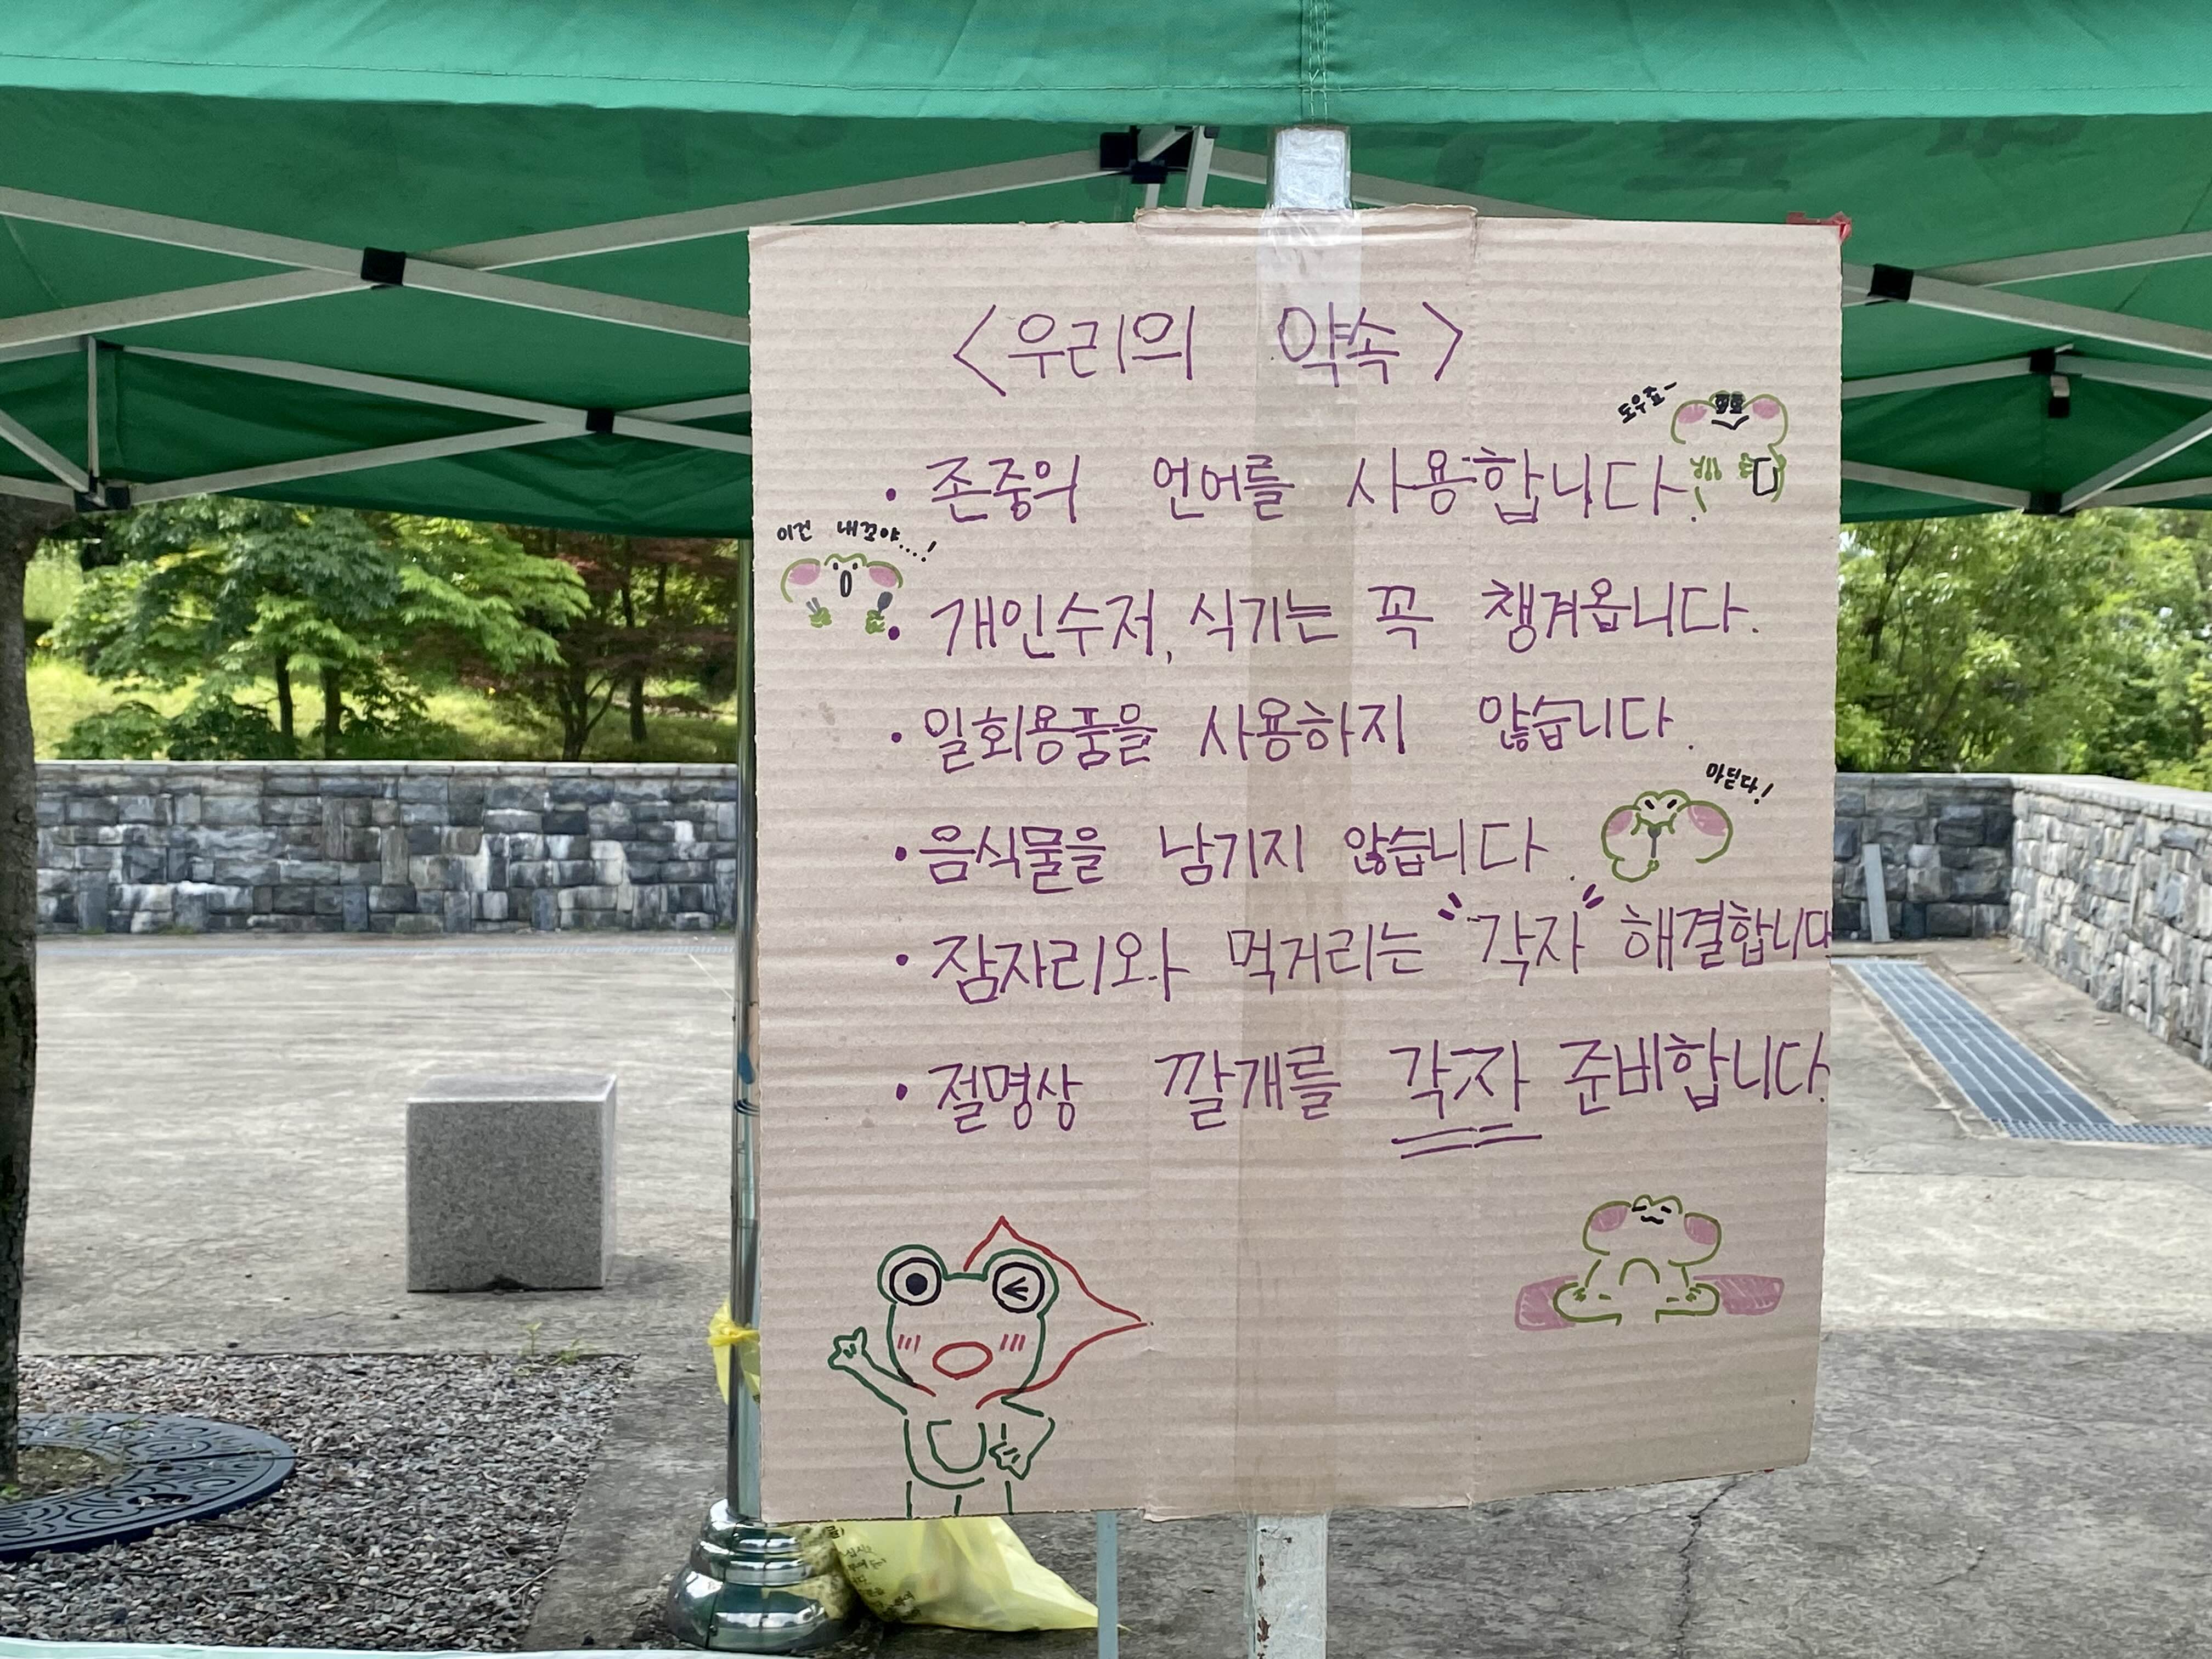 <우리의 약속>
도우죠~
• 존중의 언어를 사용합니다.
이건 내꼬야...!
• 개인수저, 식기는 꼭 챙겨옵니다.
• 일회용품을 사용하지 않습니다.
마딛다!
• 음식물을 남기지 않습니다.
• 잠자리와 먹거리는 "각자" 해결합니다
• 절명상 깔개를 각자 준비합니다.